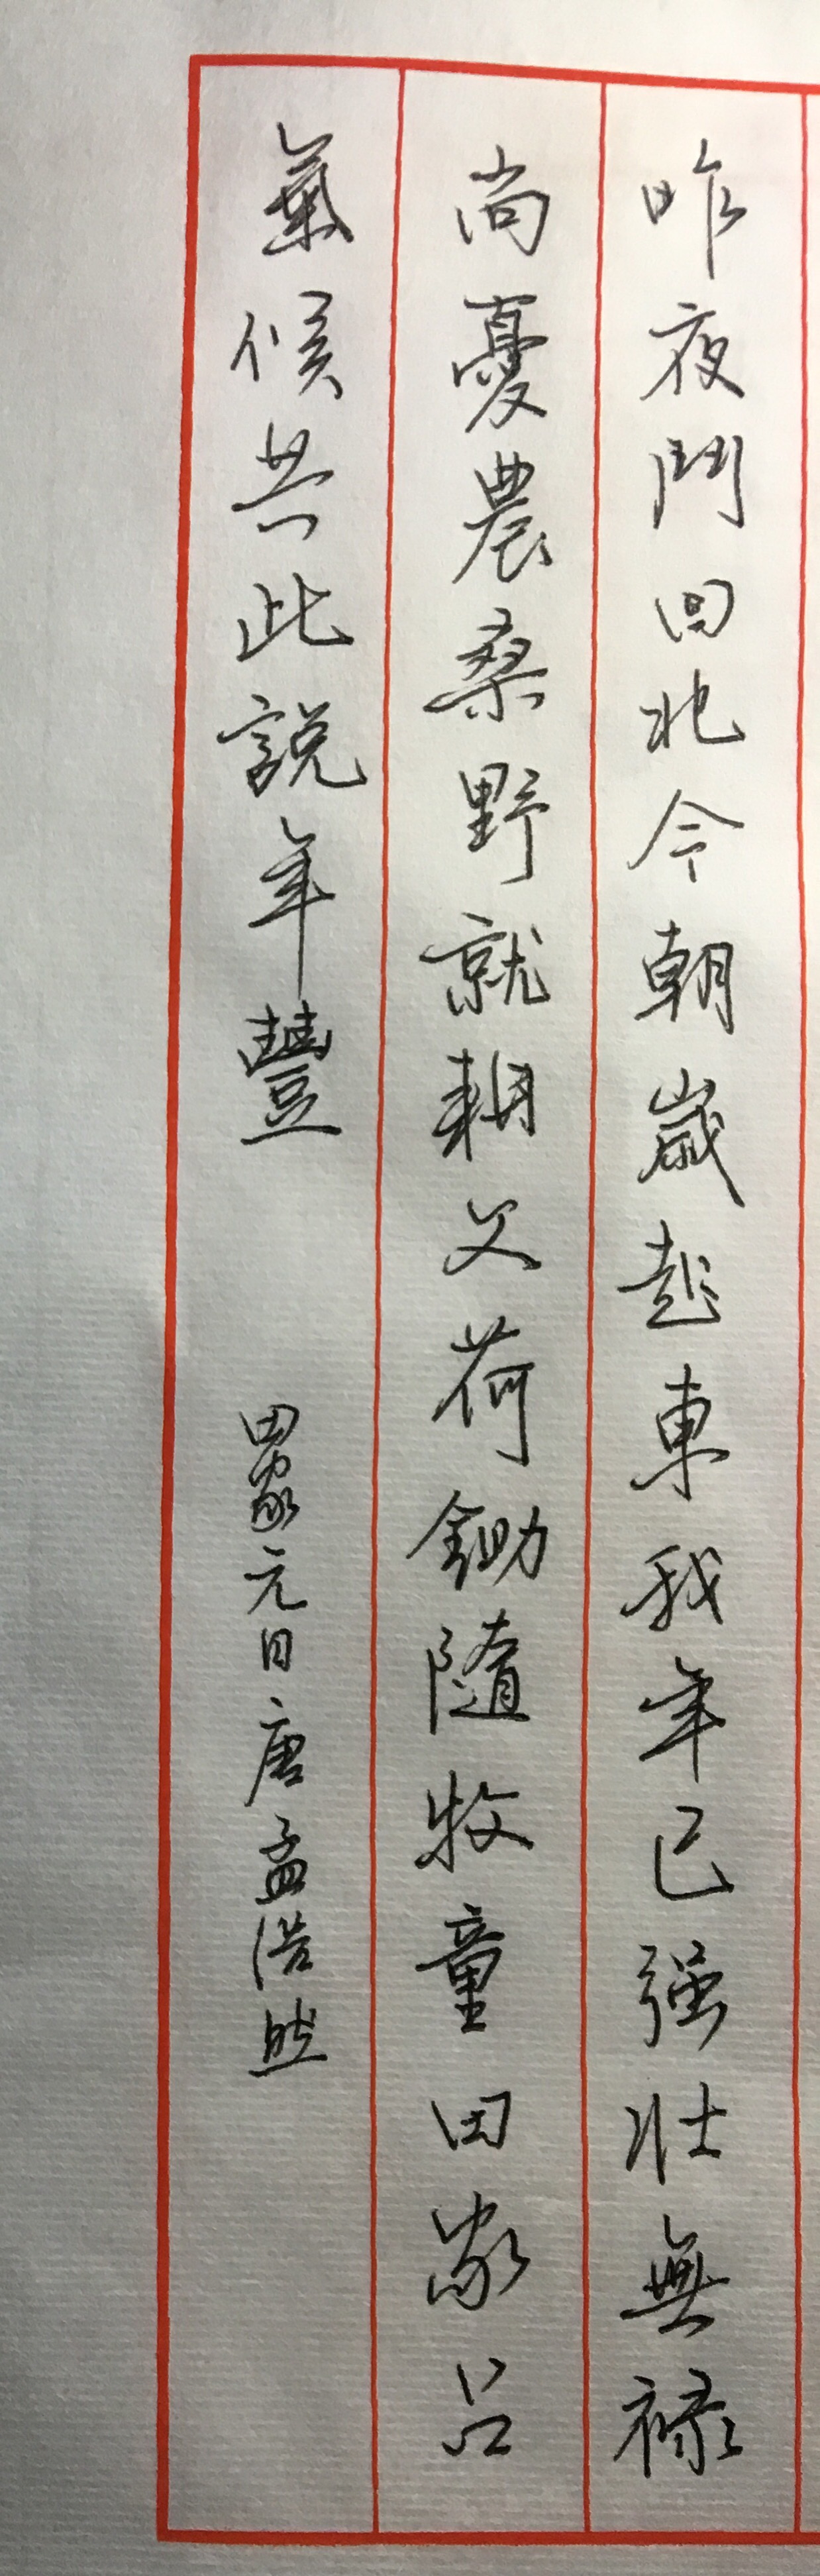 昨夜鬥回北今朝歲起東我年已强壮無禄
尚憂農桑野就耕父荷鋤隨牧童田家占
氣候共此説年豐 田家元日唐孟浩然